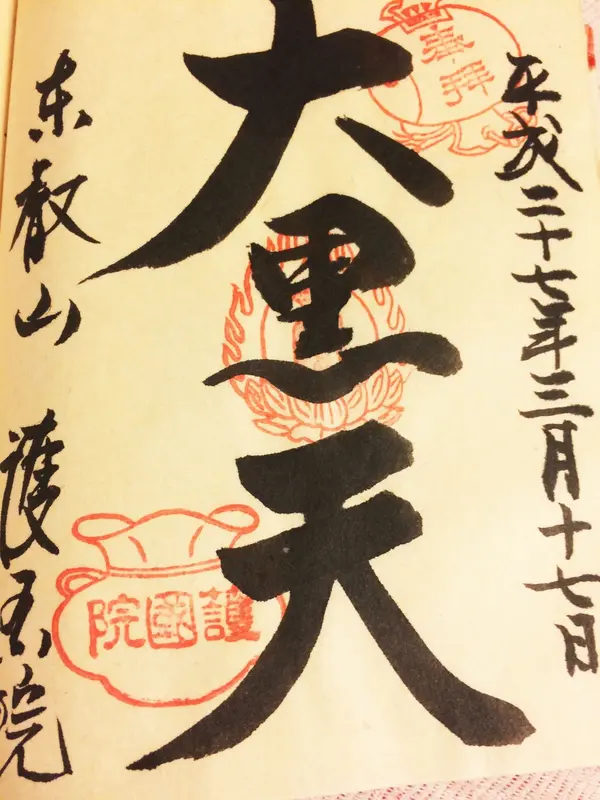 奉拝
平成二十七年三月十七日
大黒天
東叡山 護国院
護國院